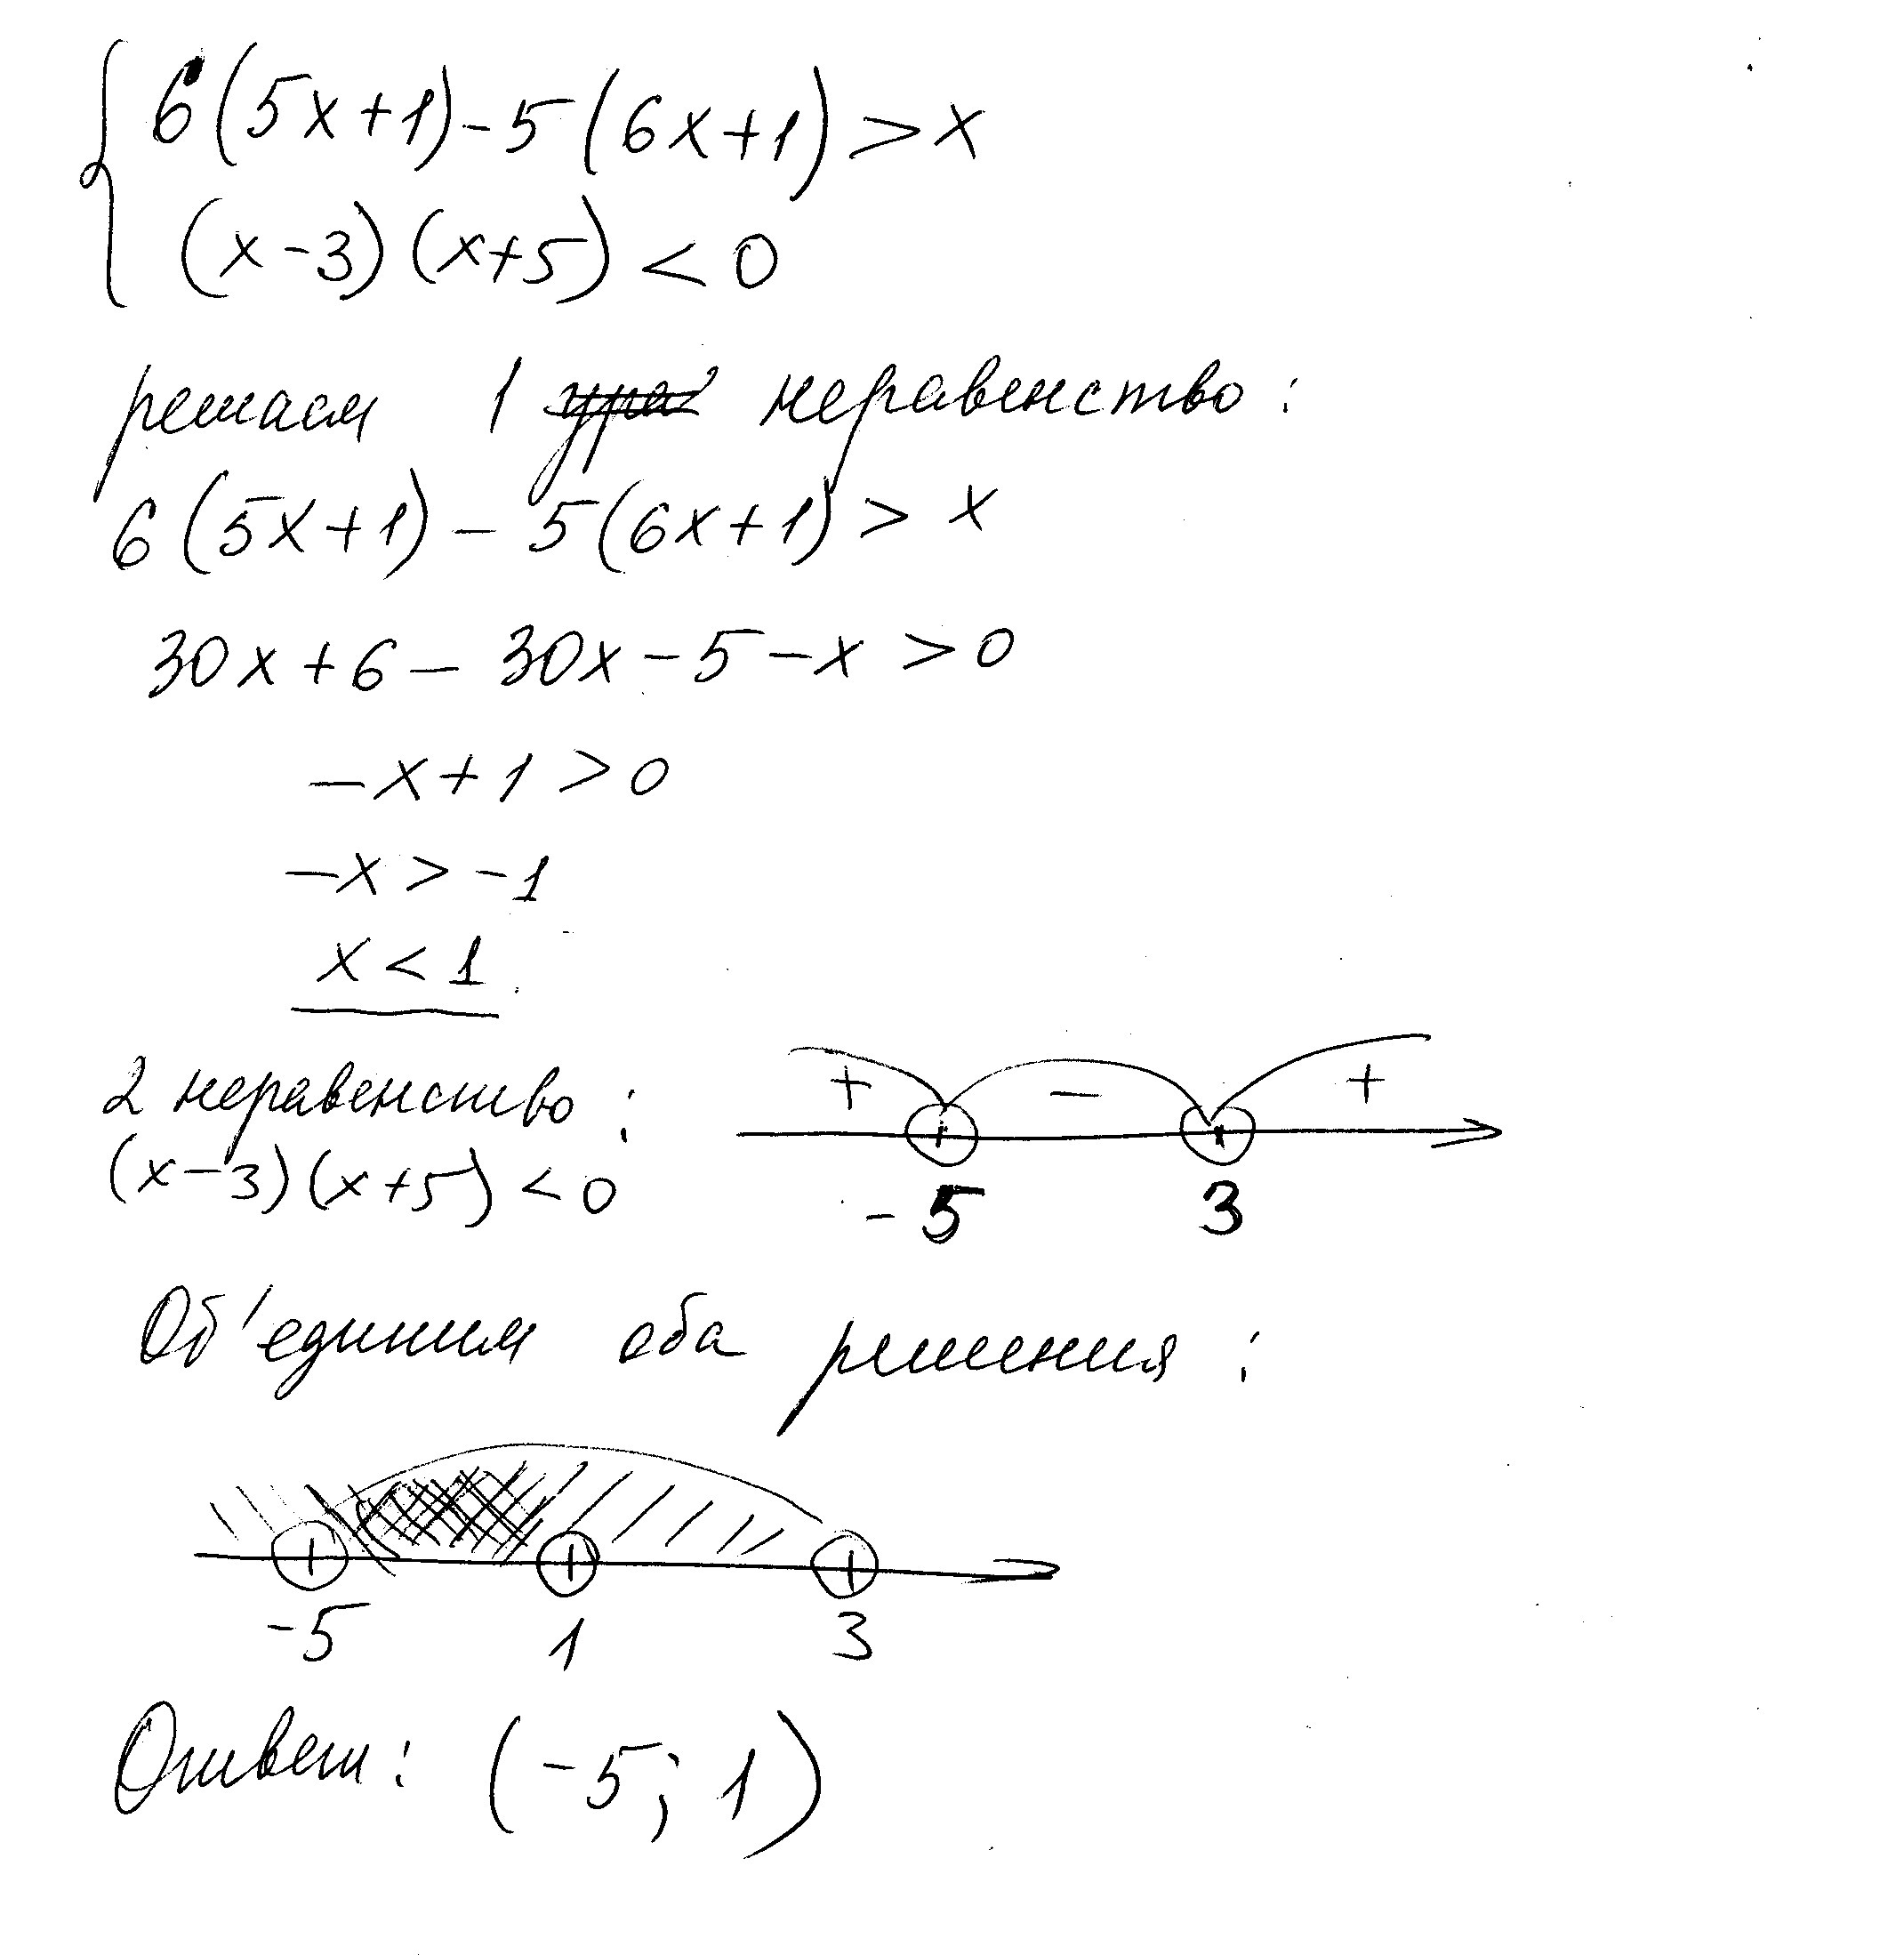 6(5x+1)-5(6x+1)>x
(x-3)(x+5)<0
решаем 1 ура неравенство:
6(5x+1)-5(6x+1)>x
30x+6-30x-5-x>0
-x+1>0
-x>-1
x<1
2 неравенство:
(x-3)(x+5)<0
+ - +
-5 3
Об'единим оба решения:
-5 1 3
Ответ: (-5; 1)